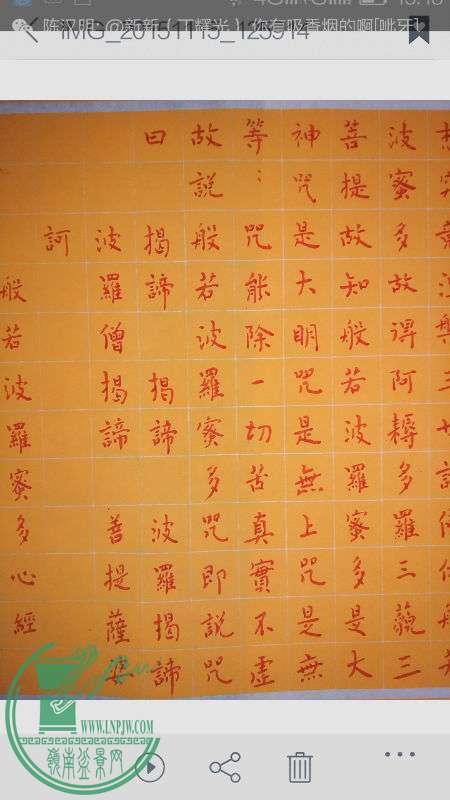 陈汉明：@新新（丁耀光）你有吸香烟的啊[呲牙]
IMG_20151115_125914
波蜜多故得阿耨多羅三藐三
菩提故知般若波羅蜜多是大
神咒是大明咒是無上咒是無
等〻咒能除一切苦真實不虛
故說般若波羅蜜多咒即說咒
曰 揭諦 揭諦 波羅揭諦
波羅僧揭諦 菩提薩婆
訶
般若波羅蜜多心經
WWW.LNPJW.COM
嶺南盆景网